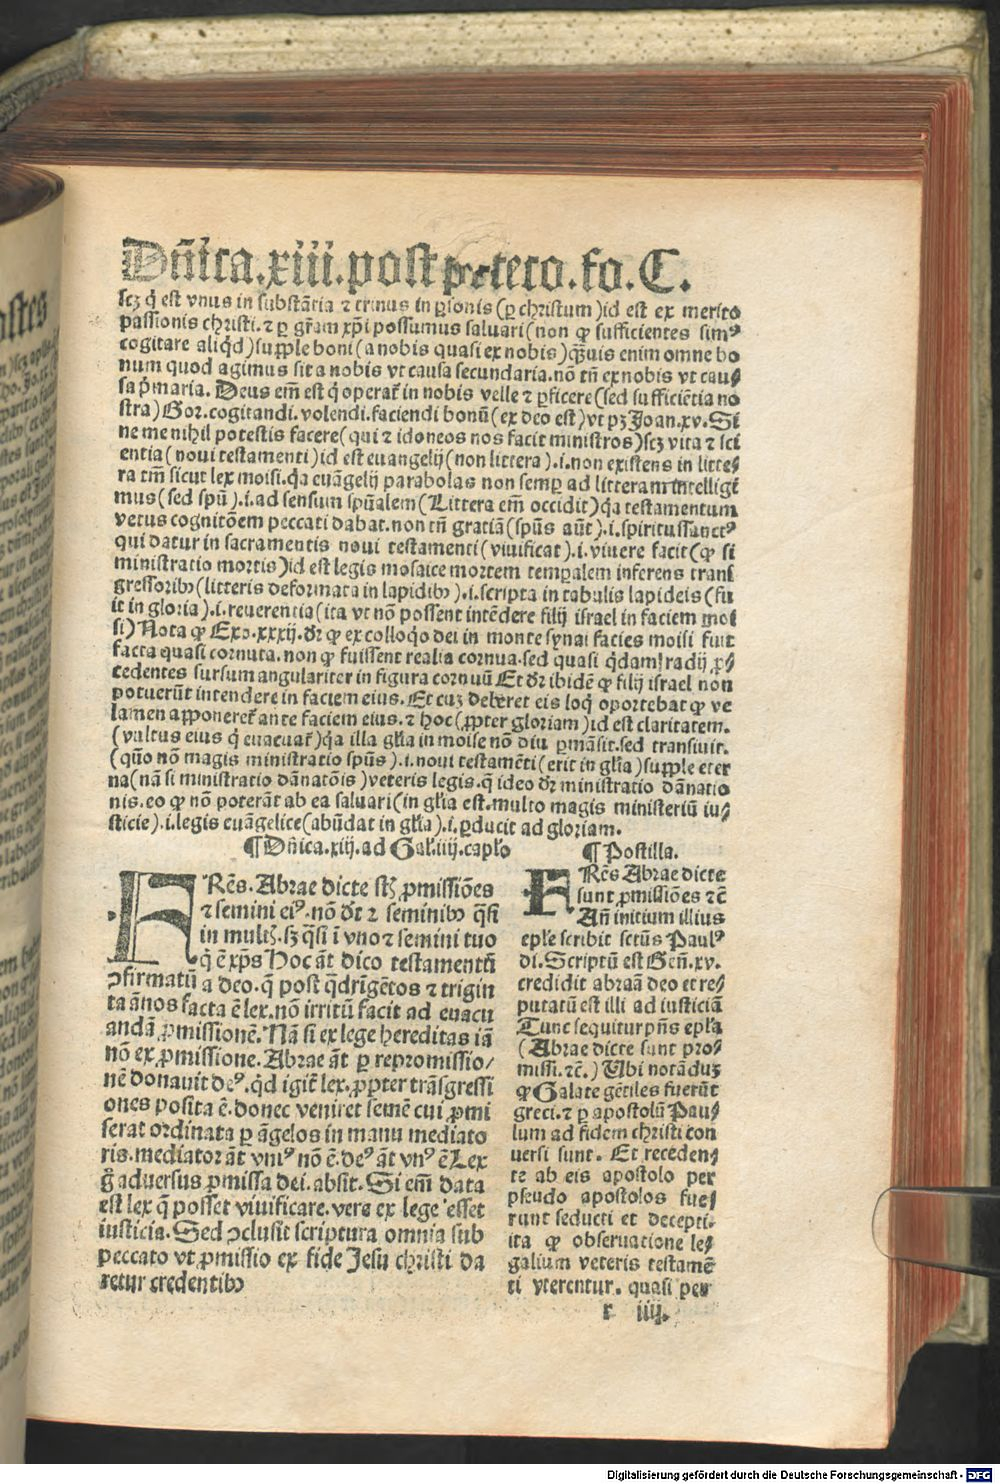 Dñica.xiii.post penteco.fo.C.
scꝫ q̇ est vnus in substãtia ⁊ trinus in ꝑsonis (ꝑ christum) id est ex merito
passionis christi.⁊ ꝑ gr̃am xp̃i possumus saluari (non ꝙ sufficientes simꝰ
cogitare aliq̇d) supple boni (a nobis quasi ex nobis) q̃uis enim omne bo
num quod agimus sit a nobis vt causa secundaria.nõ tñ ex nobis vt cau⸗
sa p̃maria. Deus em̃ est q̇ operat᷑ in nobis velle ⁊ ꝑficere (sed sufficiẽtia no
stra) Gor.cogitandi.volendi.faciendi bonũ (ex deo est) vt pꝫ Joan.xv. Si
ne me nihil potestis facere (qui ⁊ idoneos nos facit ministros) scꝫ vita ⁊ sci
entia (noui testamenti) id est euangelij (non littera).i.non existens in litte⸗
ra tm̃ sicut lex moisi.q̇a euãgelij parabolas non semꝑ ad litteram intelligi⸗
mus (sed spũ).i.ad sensum spũalem (Littera em̃ occidit) q̇a testamentum
vetus cognitõem peccati dabat.non tñ gratiã (spũs aũt).i.spiritussanctꝰ
qui datur in sacramentis noui testamenti (viuificat).i.viuere facit (ꝙ si
ministratio mortis) id est legis mosaice mortem temꝑalem inferens trans
gressoribꝰ (litteris deformata in lapidibꝰ).i.scripta in tabulis lapideis (fu
it in gloria).i.reuerentia (ita vt nõ possent intẽdere filij israel in faciem moi
si) Nota ꝙ Exo.xxxij. dr̃ ꝙ ex colloq̇o dei in monte synai facies moisi fuit
facta quasi cornuta.non ꝙ fuissent realia cornua.sed quasi q̇dam radij ꝓ⸗
cedentes sursum angulariter in figura cornuũ Et dr̃ ibidẽ ꝙ filij israel non
potuerũt intendere in faciem eius. Et cuꝫ deberet eis loq̇ oportebat ꝙ ve
lamen apponeret᷑ ante faciem eius.⁊ hoc (ꝓpter gloriam) id est claritatem.
(vultus eius q̇ euacuat᷑) q̇a illa gl̃ia in moise nõ diu ꝑmãsit.sed transiuit.
(quõ nõ magis ministratio spũs).i.noui testamẽti (erit in gl̃ia) supple eter
na (nã si ministratio dãnatõis) veteris legis.q̃ ideo dr̃ ministratio dãnatio
nis.eo ꝙ nõ poterãt ab ea saluari (in gl̃ia est.multo magis ministeriũ iu⸗
sticie).i.legis euãgelice (abũdat in gl̃ia).i.ꝑducit ad gloriam.
¶ Dñica.xiij.ad Gal̃.iiij.caplo
FRẽs.Abrae dicte st̃ ꝓmissiões
⁊ semini eiꝰ.nõ dr̃ ⁊ seminibꝰ q̃si
in multꝭ.sꝫ q̃si ĩ vno ⁊ semini tuo
q̇ ẽ xp̃s Hoc ãt dico testamentũ
ꝯfirmatũ a deo.q̃ post q̃drĩgẽtos ⁊ trigin
ta ãnos facta ẽ lex.nõ irritũ facit ad euacu
andã ꝓmissionẽ. Nã si ex lege hereditas iã
nõ ex ꝓmissione.Abrae ãt ꝑ repromissio⸗
nẽ donauit deꝰ.q̇d igit᷑ lex.ꝓpter trãsgressi
ones posita ẽ.donec veniret semẽ cui ꝓmi
serat ordinata ꝑ ãgelos in manu mediato
ris.mediator ãt vniꝰ nõ ẽ.deꝰ ãt vnꝰ ẽ Lex
g̊ aduersus ꝓmissa dei.absit. Si em̃ data
est lex q̃ posset viuificare.vere ex lege esset
iusticia. Sed ꝯclusit scriptura omnia sub
peccato vt ꝓmissio ex fide Jesu christi da
retur credentibꝰ
¶ Postilla.
FRẽs Abrae dicte
sunt ꝓmissiões ⁊c̃
Añ initium illius
ep̃le scribit sctũs Paulꝰ
di. Scriptũ est Geñ.xv.
credidit abraã deo et re⸗
putatũ est illi ad iusticiã
Tunc sequitur pñs ep̃la
(Abrae dicte sunt pro⸗
missi.⁊c̃.) Vbi notãduꝫ
ꝙ Galate gẽtiles fuerũt
greci.⁊ ꝑ apostolũ Pau⸗
lum ad fidem christi con
uersi sunt. Et receden⸗
te ab eis apostolo per
pseudo apostolos fue⸗
runt seducti et decepti.
ita ꝙ obseruatione le⸗
galium veteris testamẽ
ti vterentur. quasi per
r iiij.
Digitalisierung gefördert durch die Deutsche Forschungsgemeinschaft - DFG